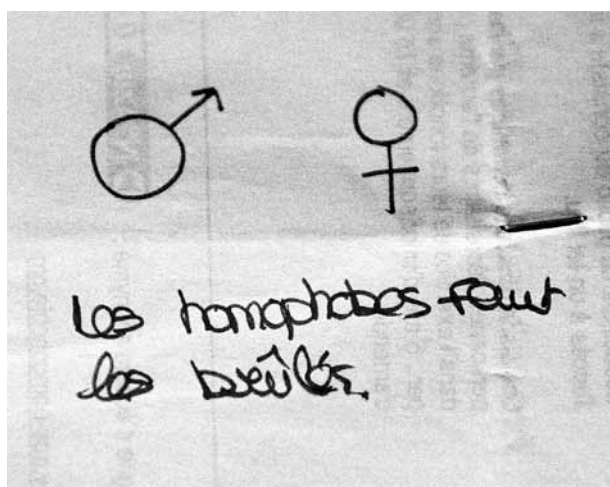 Les homophobes faut
les brûlés.